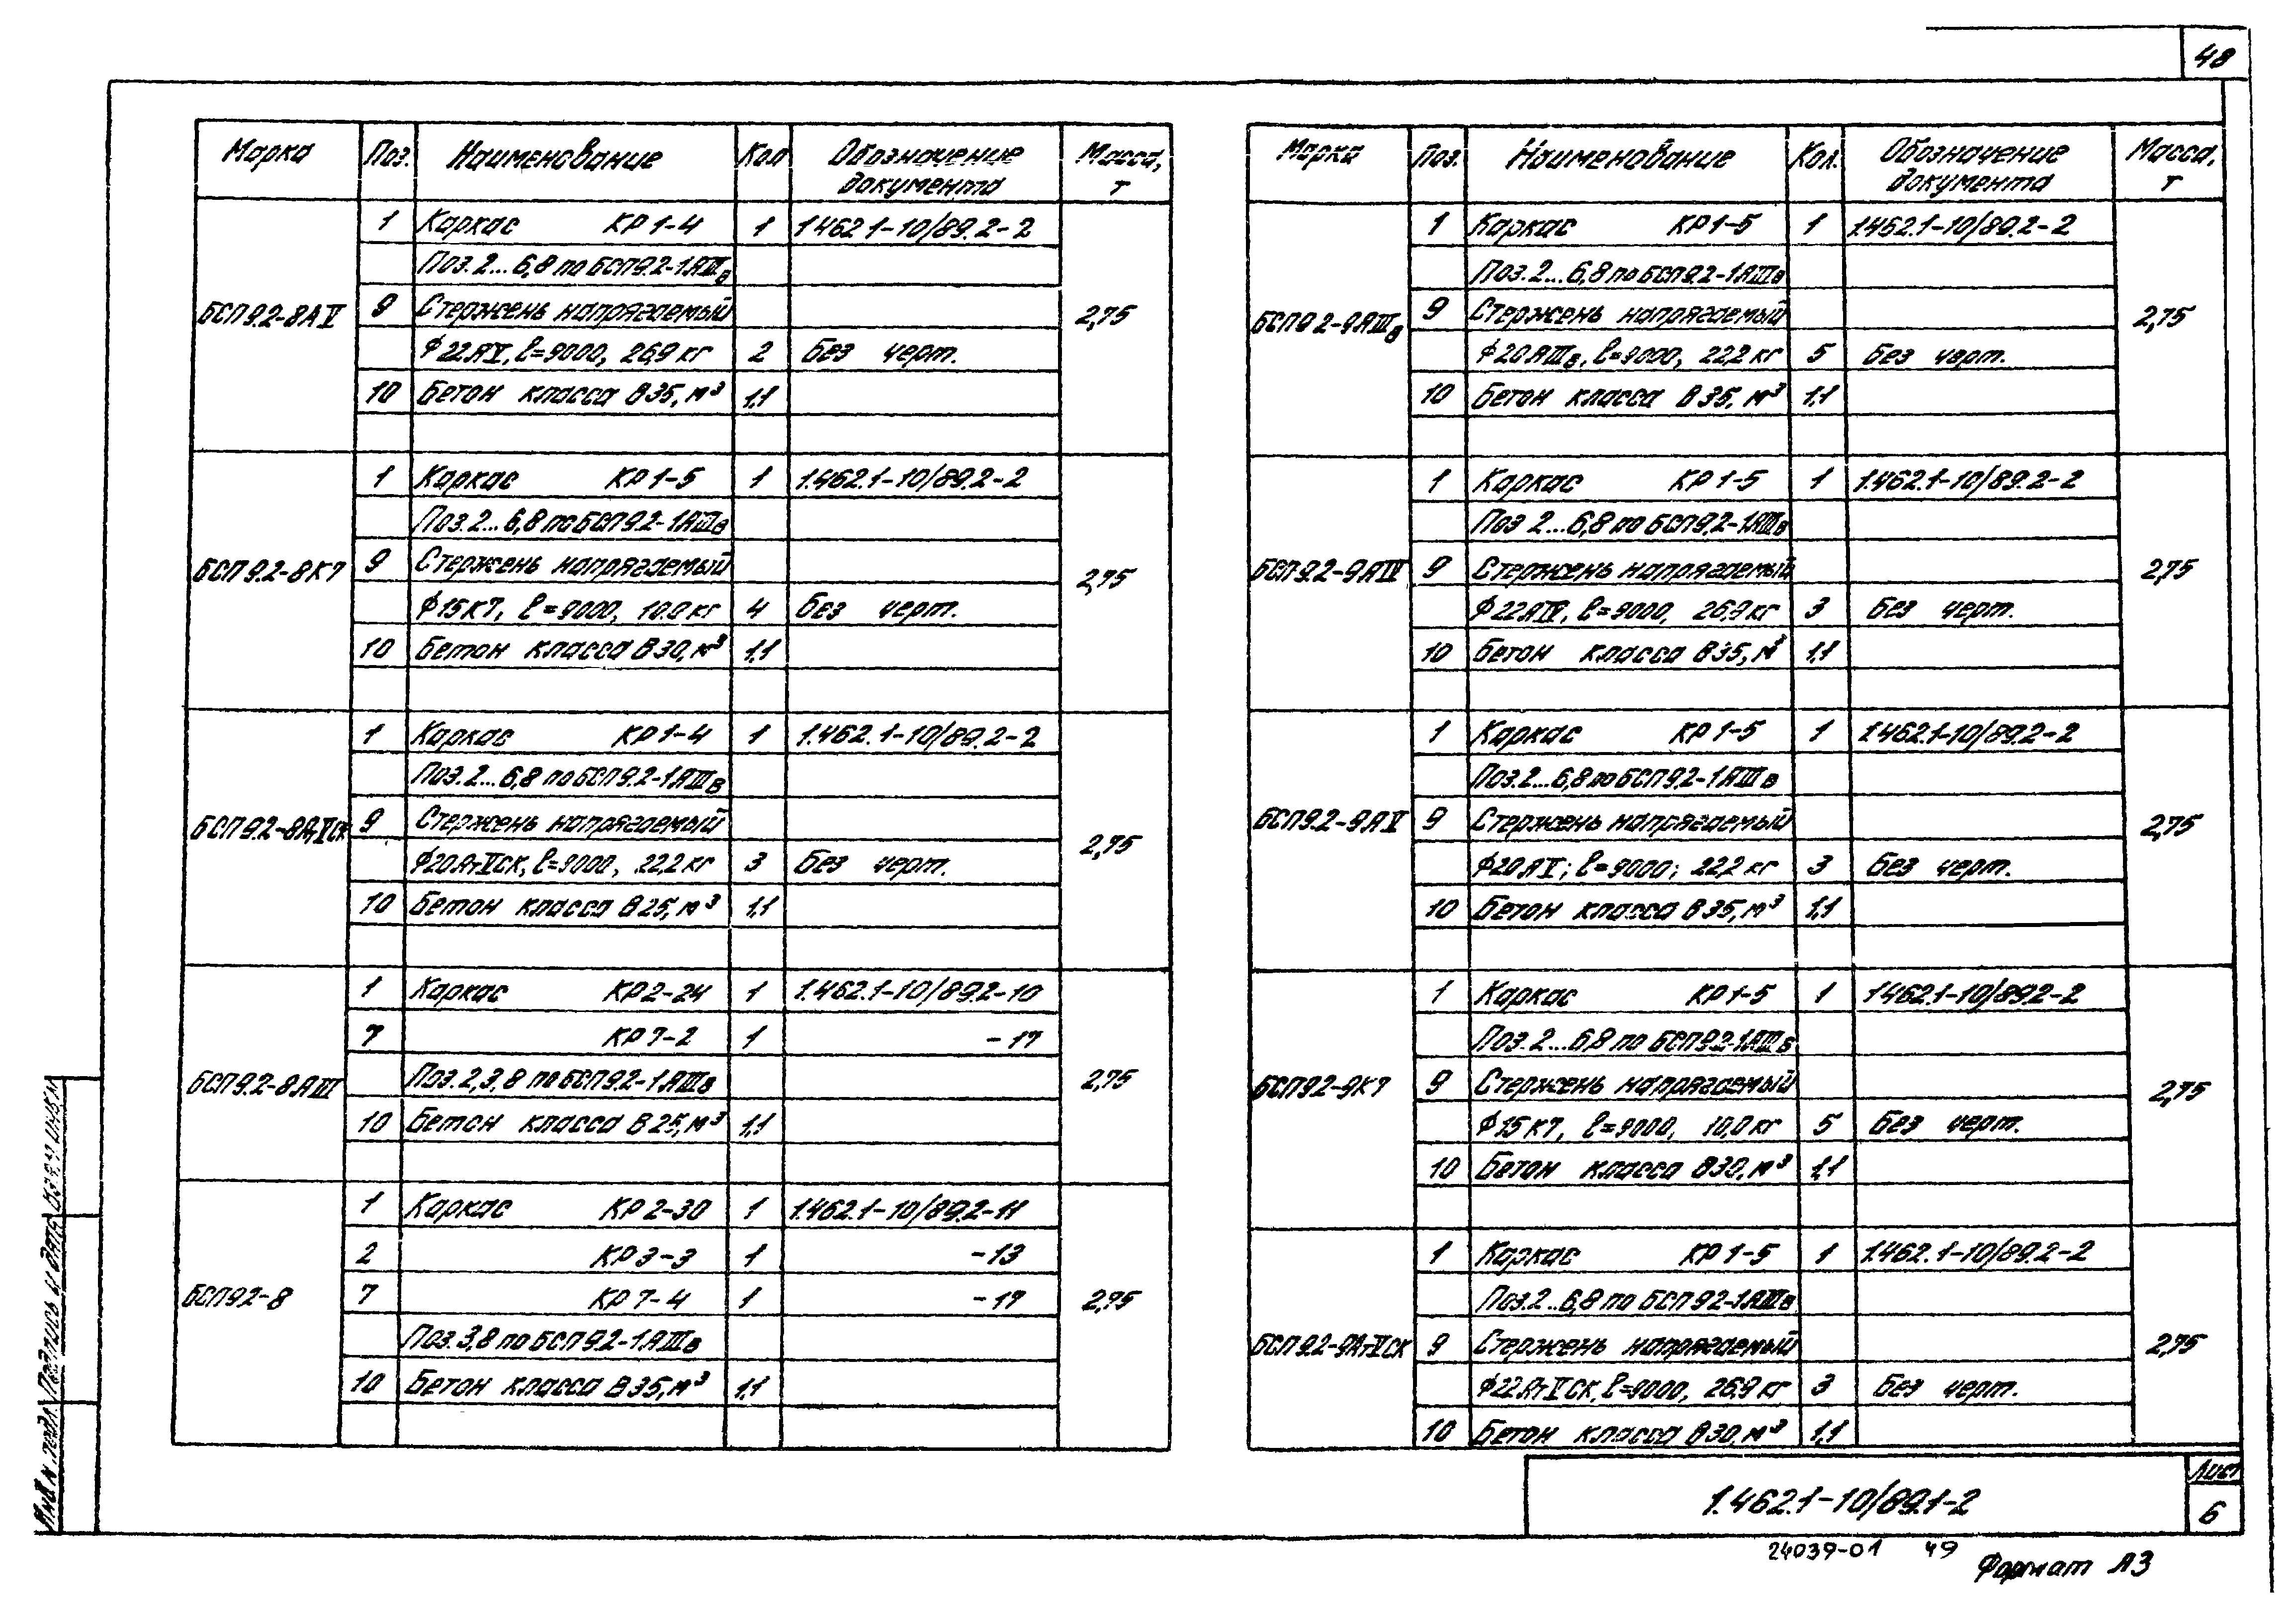 48
Марка Поз. Наименование Кол Обозначение документа Масса, т
БСП9.2-8АV 2,75
1 Каркас КР1-4 1 1.462.1-10/89.2-2
Поз. 2...6,8 по БСП9.2-1АIIIв
9 Стержень напрягаемый
ф22АV, ℓ=9000, 26,9 кг 2 Без черт.
10 Бетон класса В35, м³ 1,1
БСП9.2-8К7 2,75
1 Каркас КР1-5 1 1.462.1-10/89.2-2
Поз. 2...6,8 по БСП9.2-1АIIIв
9 Стержень напрягаемый
ф15К7, ℓ=9000, 10.0 кг 4 Без черт.
10 Бетон класса В30, м³ 1,1
БСП9.2-8АтVСК 2,75
1 Каркас КР1-4 1 1.462.1-10/89.2-2
Поз. 2...6,8 по БСП9.2-1АIIIв
9 Стержень напрягаемый
ф20АтVСК, ℓ=9000, 22,2 кг 3 Без черт.
10 Бетон класса В25, м³ 1,1
БСП9.2-8АIII 2,75
1 Каркас КР2-24 1 1.462.1-10/89.2-10
7 КР7-2 1 -17
Поз. 2,3,8 по БСП9.2-1АIIIв
10 Бетон класса В25, м³ 1,1
БСП9.2-8 2,75
1 Каркас КР2-30 1 1.462.1-10/89.2-11
2 КР3-3 1 -13
7 КР7-4 1 -17
Поз. 3,8 по БСП9.2-1АIIIв
10 Бетон класса В35, м³ 1,1
Марка Поз. Наименование Кол. Обозначение документа Масса, т
БСП9.2-9АIIIв 2,75
1 Каркас КР1-5 1 1.462.1-10/89.2-2
Поз. 2...6,8 по БСП9.2-1АIIIв
9 Стержень напрягаемый
ф20АIIIв, ℓ=9000, 22,2 кг 5 Без черт.
10 Бетон класса В35, м³ 1,1
БСП9.2-9АIV 2,75
1 Каркас КР1-5 1 1.462.1-10/89.2-2
Поз 2...6,8 по БСП9.2-1АIIIв
9 Стержень напрягаемый
ф22АIV, ℓ=9000, 26,9 кг 3 Без черт.
10 Бетон класса В35, м³ 1,1
БСП9.2-9АV 2,75
1 Каркас КР1-5 1 1.462.1-10/89.2-2
Поз. 2...6,8 по БСП9.2-1АIIIв
9 Стержень напрягаемый
ф20АV; ℓ=9000; 22,2 кг 3 Без черт.
10 Бетон класса В35, м³ 1,1
БСП9.2-9К7 2,75
1 Каркас КР1-5 1 1.462.1-10/89.2-2
Поз. 2...6,8 по БСП9.2-1АIIIв
9 Стержень напрягаемый
ф15К7, ℓ=9000, 10,0 кг 5 Без черт.
10 Бетон класса В30, м³ 1,1
БСП9.2-9АтVСК 2,75
1 Каркас КР1-5 1 1.462.1-10/89.2-2
Поз. 2...6,8 по БСП9.2-1АIIIв
9 Стержень напрягаемый
ф22АтVСК, ℓ=9000, 26,9 кг 3 Без черт.
10 Бетон класса В30, м³ 1,1
Инв N подл. Подпись и дата Взам инв N
1.462.1-10/89.1-2
Лист
6
24039-01 49
Формат А3